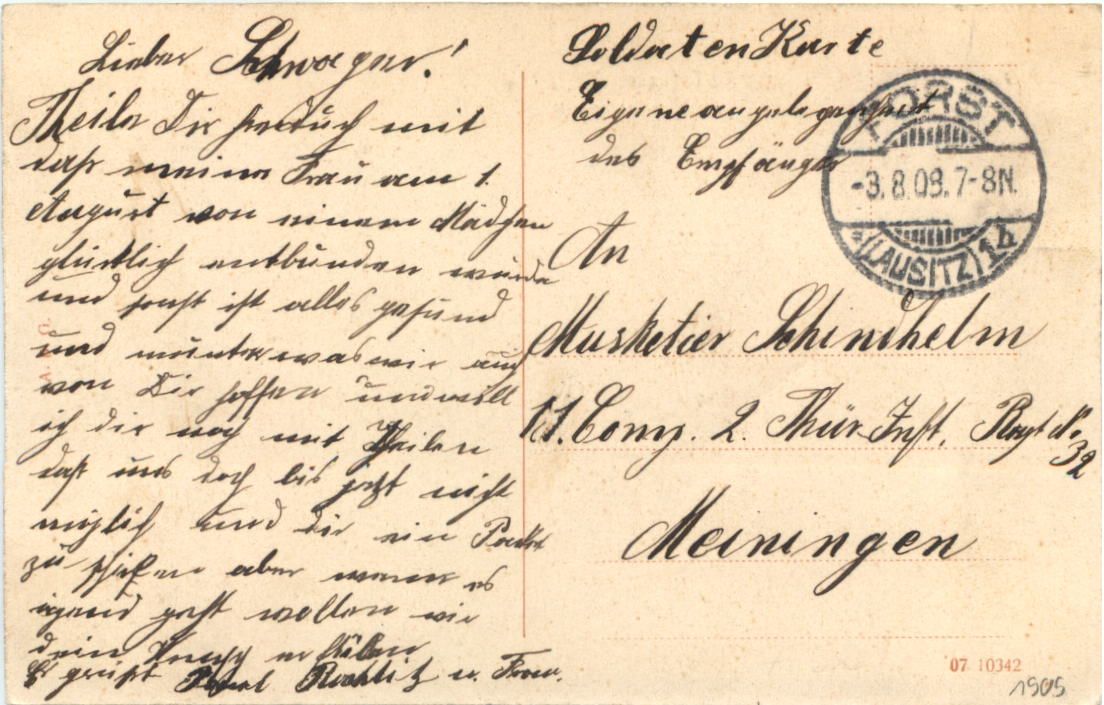 Lieber Schwager!
Theile Dir hierduch mit
daß meine Frau am 1.
August von einem Mädchen
glücklich entbunden wurde
und sonst ist alles gesund
und munter was wir auch
von Dir hoffen und will
ich dir noch mit Theilen
daß uns doch bis jetzt nicht
möglich und Dir ein Packet
zu schiken aber wenn es
irgend geht wollen wir
dein Wunsch erfüllen
Es grüßt Rochlitz u. Frau.
Soldaten Karte
Eigene angelegenheit
des Empfängers
FORST
-3.8.08.7-8N.
*(LAUSITZ)1h
An
Musketier Schindhelm
11. Comp. 2. Thür. Inft. Regt No
32
Meiningen
07 10342
1905